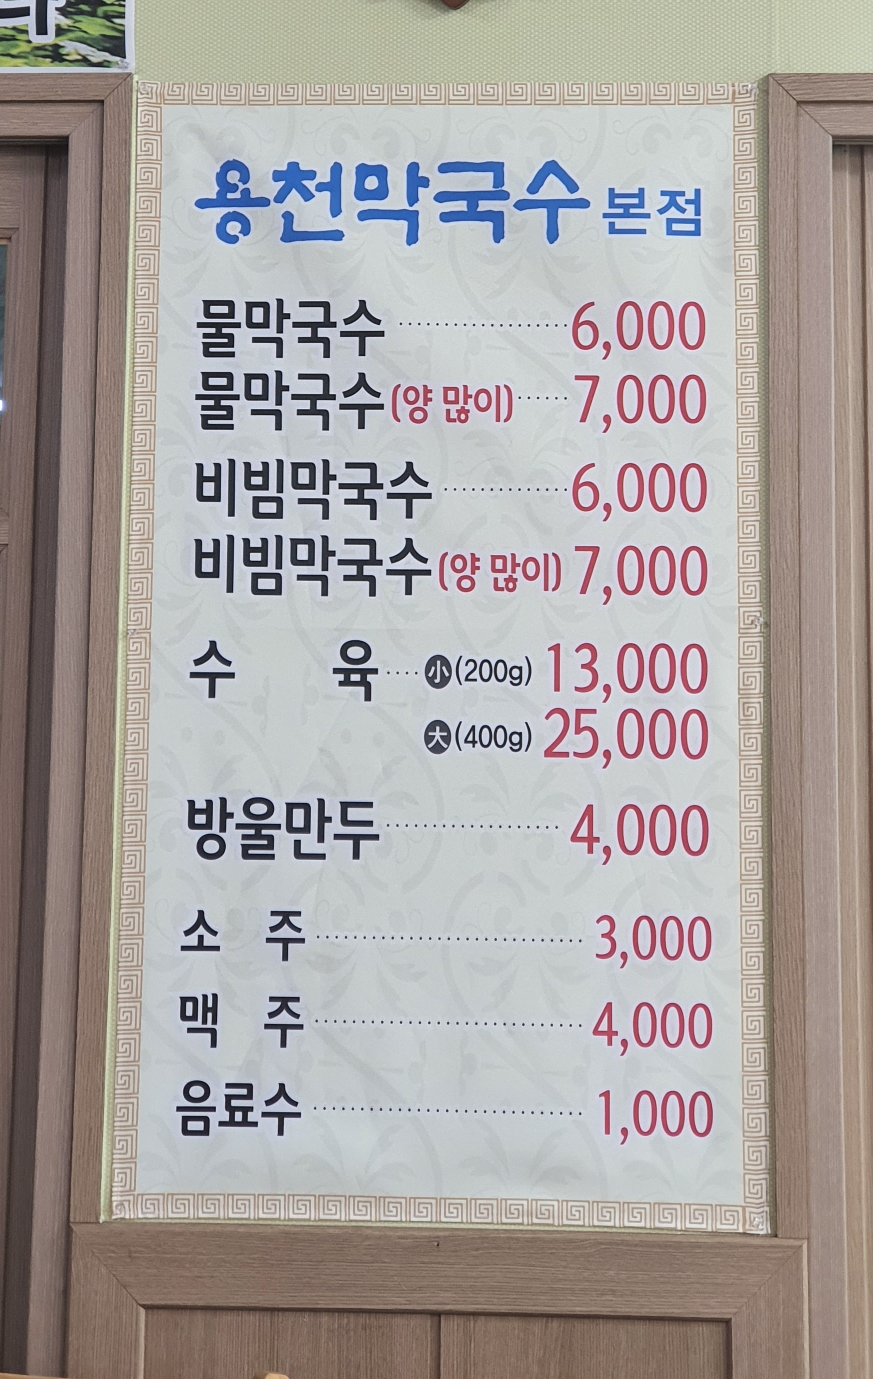 용천막국수 본점
물막국수 ················· 6,000
물막국수(양 많이) ······ 7,000
비빔막국수 ············· 6,000
비빔막국수(양 많이) 7,000
수 육 ···· 小(200g) 13,000
大(400g) 25,000
방울만두 ·················· 4,000
소 주 ··························· 3,000
맥 주 ··························· 4,000
음료수 ··························· 1,000